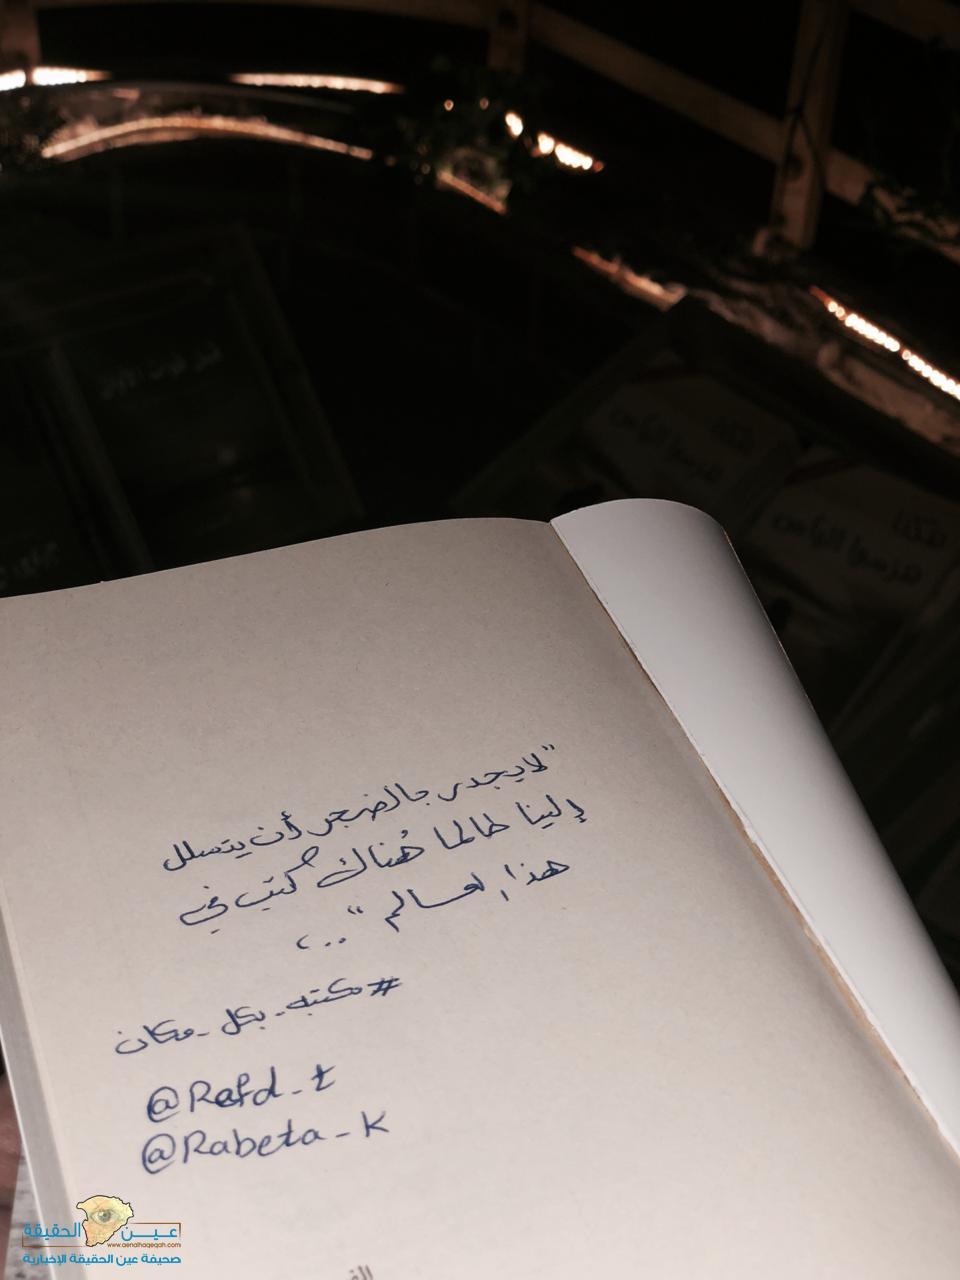 "لا يجدر بالضجر أن يتسلل
إلينا طالما هُناك كتب في
هذا العالم "..،
#مكتبة_بكل_مكان
@Rafd_t
@Rabeta_k
عين الحقيقة
www.aenalhaqeqah.com
صحيفة عين الحقيقة الإخبارية